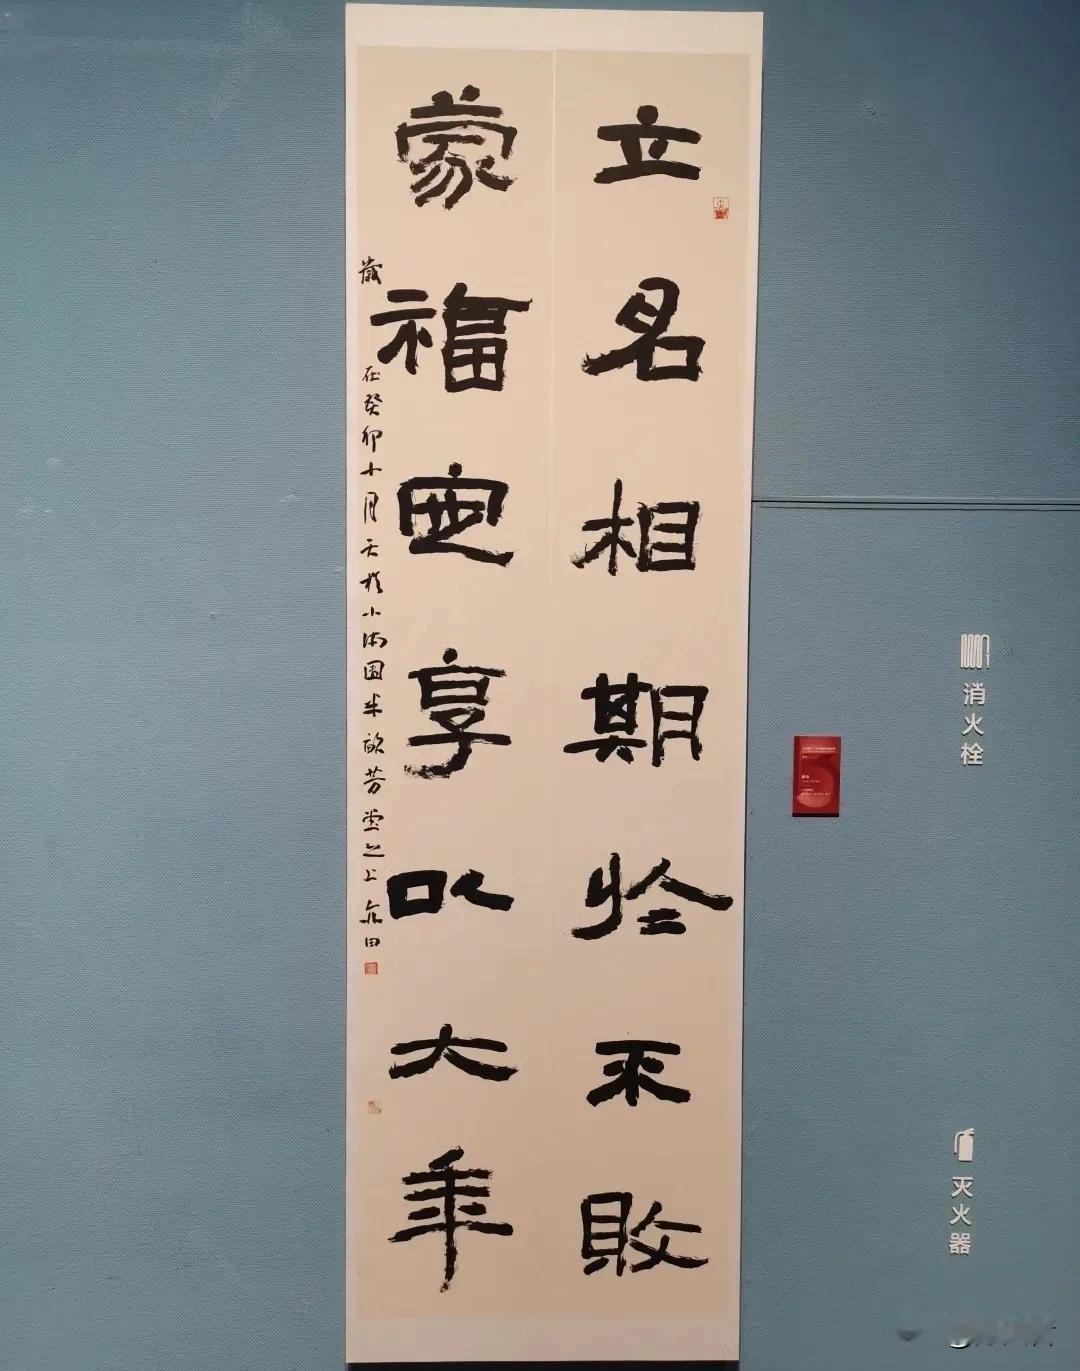 立名相期於不敗
蒙福宜享以大年
歲在癸卯十月天於小南園朱䣭芳堂之上 田
消火栓
灭火器